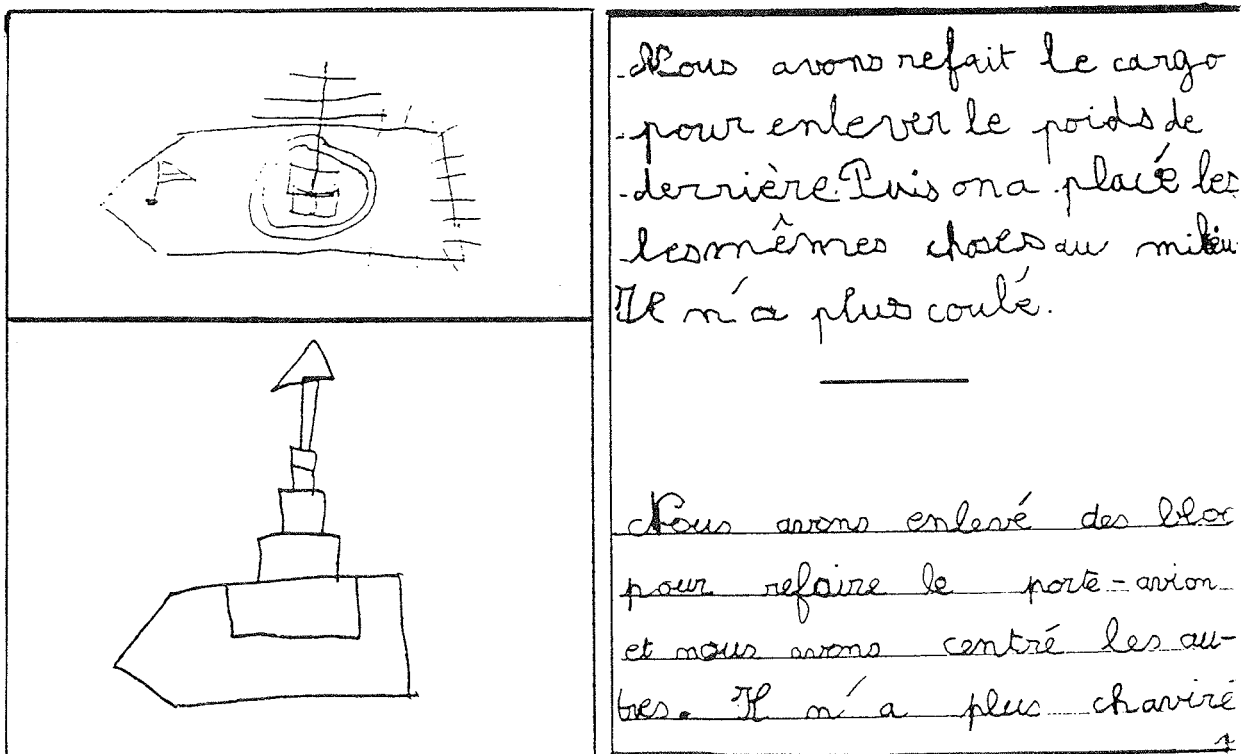 Nous avons refait le cargo
pour enlever le poids de
derrière. Puis on a placé les
les mêmes choses au milieu
Il n'a plus coulé.
Nous avons enlevé des bloc
pour refaire le porte-avion
et nous avons centré les au-
tres. Il n'a plus chaviré